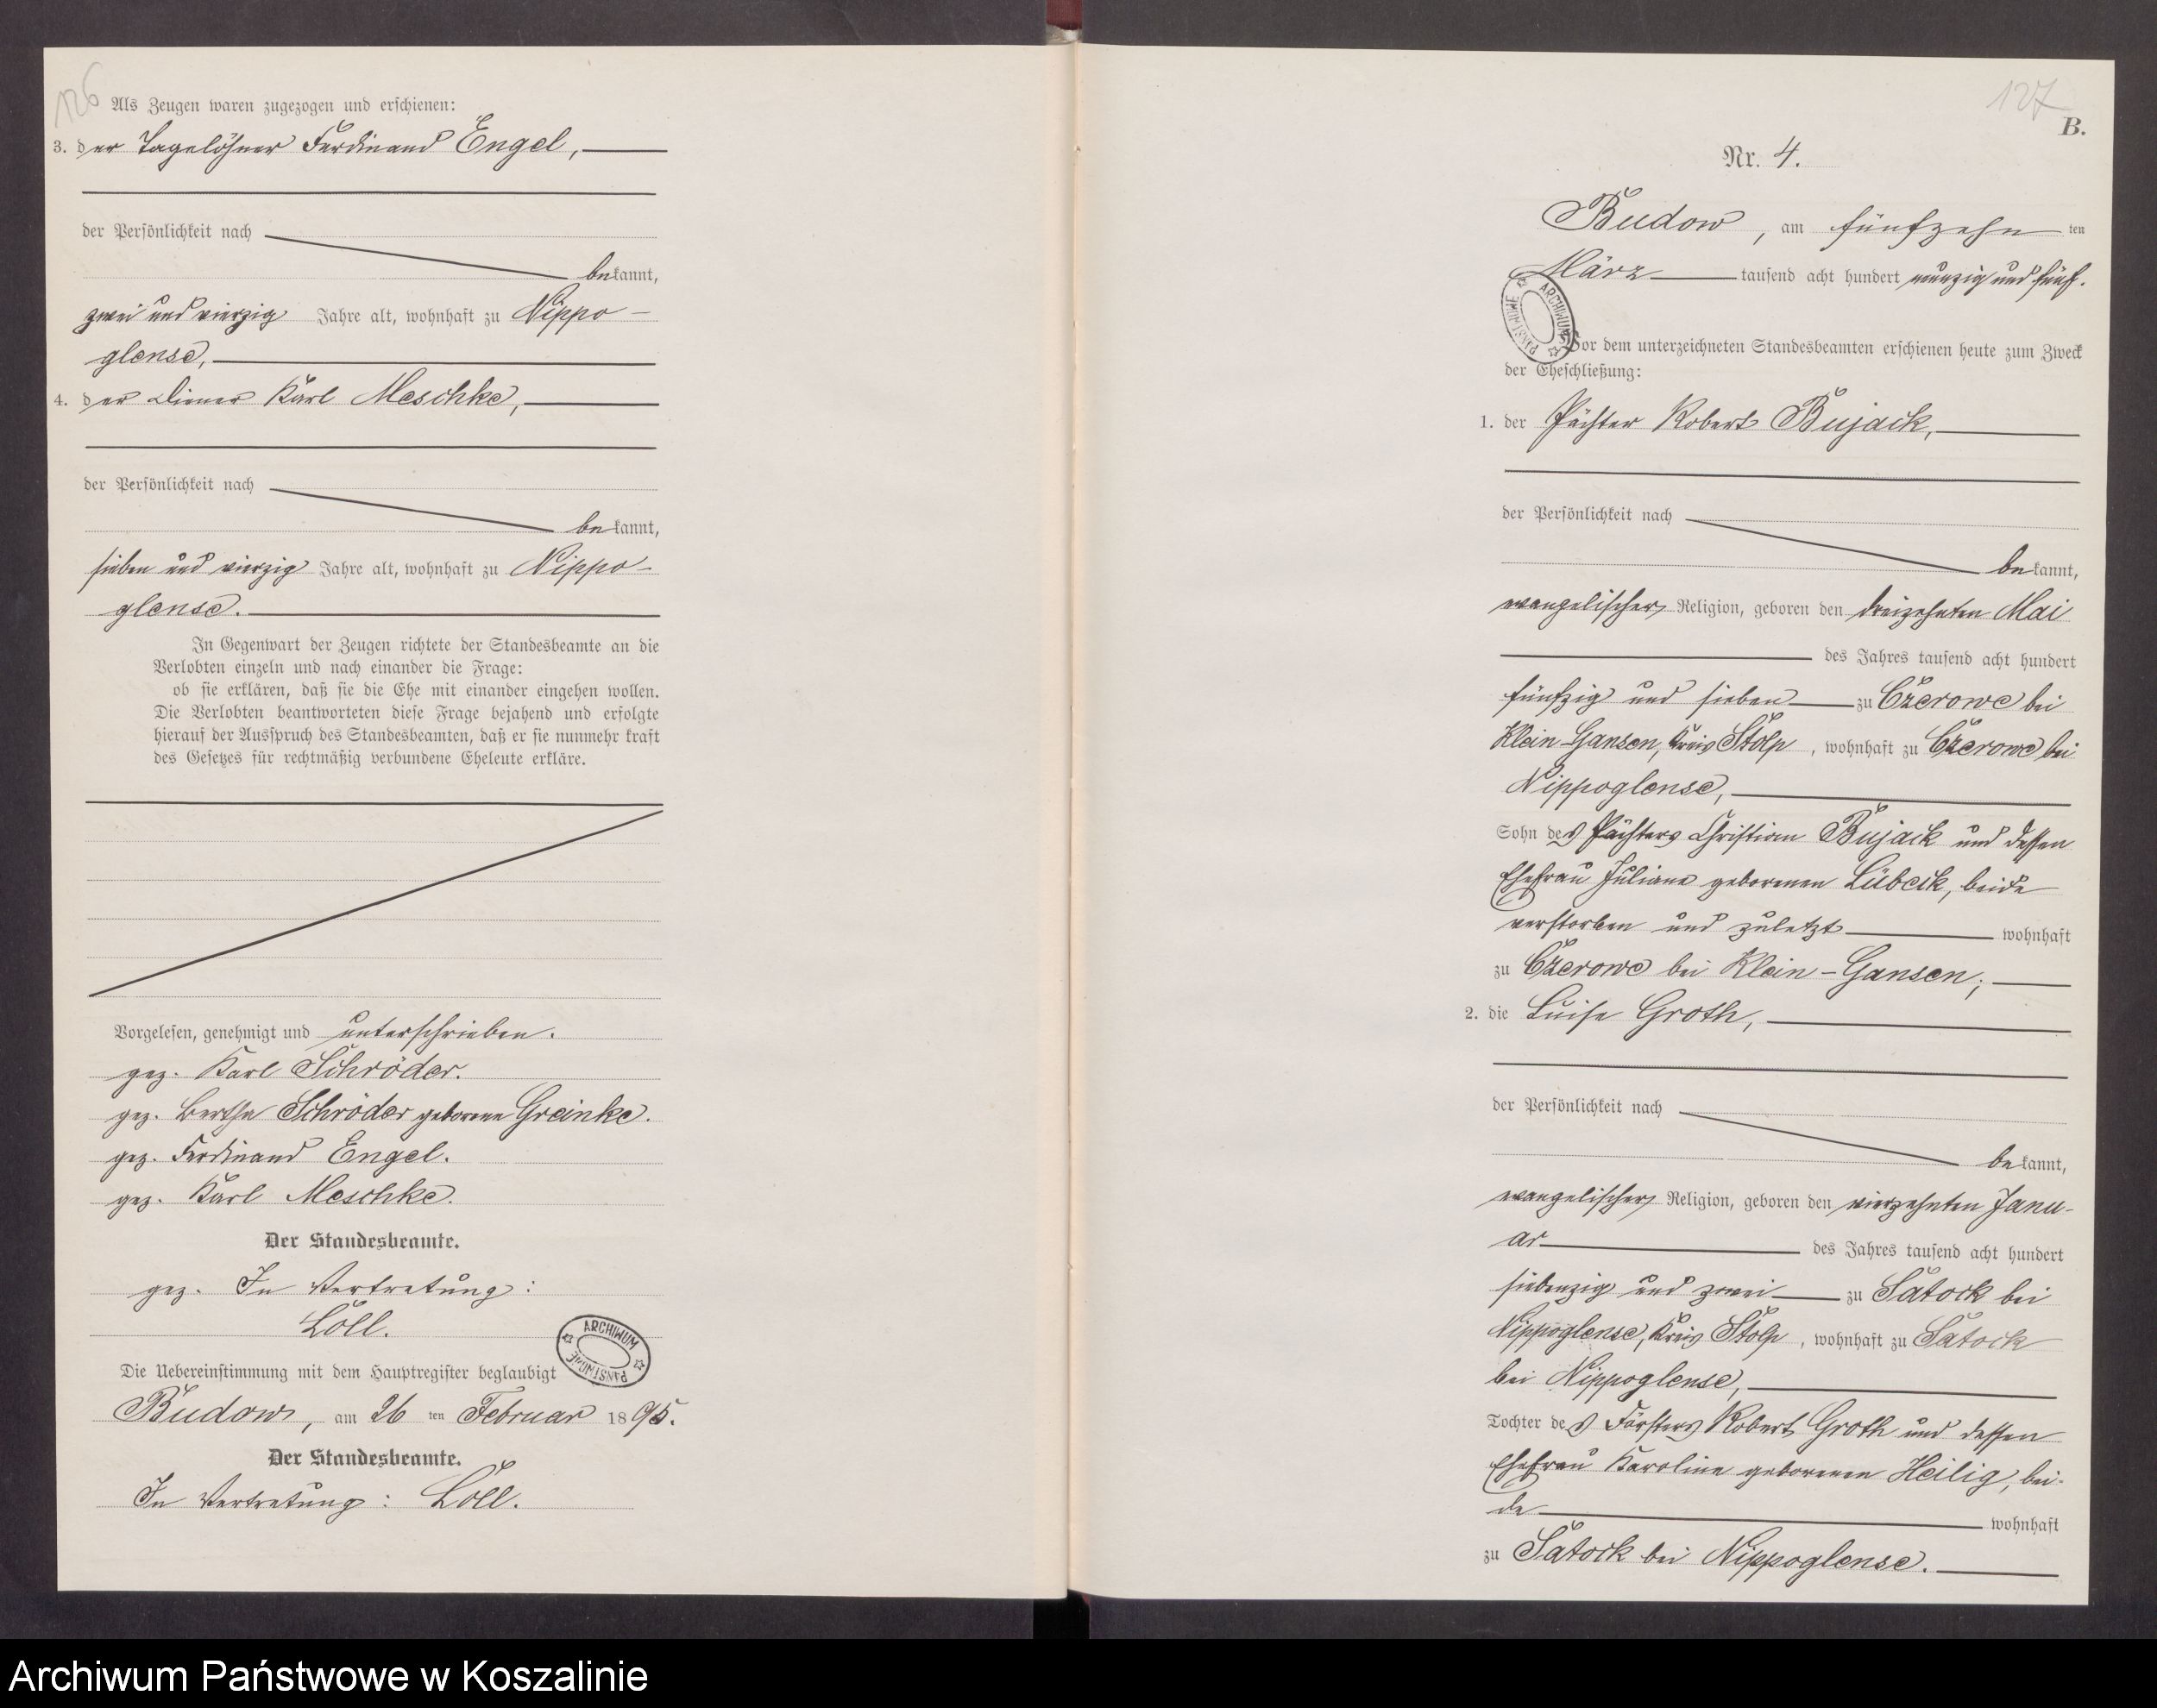 126
Als Zeugen waren zugezogen und erschienen:
3. der Tagelöhner Ferdinand Engel,
der Persönlichkeit nach
bekannt,
zwei und vierzig Jahre alt, wohnhaft zu Nippo-
glense,
4. der Diener Karl Meschke,
der Persönlichkeit nach
bekannt,
sieben und vierzig Jahre alt, wohnhaft zu Nippo-
glense.
In Gegenwart der Zeugen richtete der Standesbeamte an die
Verlobten einzeln und nach einander die Frage:
ob sie erklären, daß sie die Ehe mit einander eingehen wollen.
Die Verlobten beantworteten diese Frage bejahend und erfolgte
hierauf der Ausspruch des Standesbeamten, daß er sie nunmehr kraft
des Gesetzes für rechtmäßig verbundene Eheleute erkläre.
Vorgelesen, genehmigt und unterschrieben.
gez. Karl Schröder.
gez. Bertha Schröder geborene Greinke.
gez. Ferdinand Engel.
gez. Karl Meschke.
Der Standesbeamte.
gez. In Vertretung:
Löll.
ARCHIWUM PAŃSTWOWE
Die Uebereinstimmung mit dem Hauptregister beglaubigt
Budow, am 26 ten Februar 1895.
Der Standesbeamte.
In Vertretung: Löll.
127
B.
Nr. 4.
Budow, am fünfzehn ten
März tausend acht hundert neunzig und fünf.
ARCHIWUM PAŃSTWOWE
Vor dem unterzeichneten Standesbeamten erschienen heute zum Zweck
der Eheschließung:
1. der Pächter Robert Bujack,
der Persönlichkeit nach
bekannt,
evangelischer Religion, geboren den dreizehnten Mai
des Jahres tausend acht hundert
fünfzig und sieben zu Czerowe bei
Klein Gansen, Kreis Stolp, wohnhaft zu Czerowe bei
Nippoglense,
Sohn des Pächters Christian Bujack und dessen
Ehefrau Juliane geborenen Lübeck, beide
verstorben und zuletzt wohnhaft
zu Czerowe bei Klein-Gansen;
2. die Luise Groth,
der Persönlichkeit nach
bekannt,
evangelischer Religion, geboren den vierzehnten Janu-
ar des Jahres tausend acht hundert
siebenzig und zwei zu Satock bei
Nippoglense, Kreis Stolp, wohnhaft zu Satock
bei Nippoglense,
Tochter des Försters Robert Groth und dessen
Ehefrau Karoline geborenen Heilig, bei-
de wohnhaft
zu Satock bei Nippoglense.
Archiwum Państwowe w Koszalinie